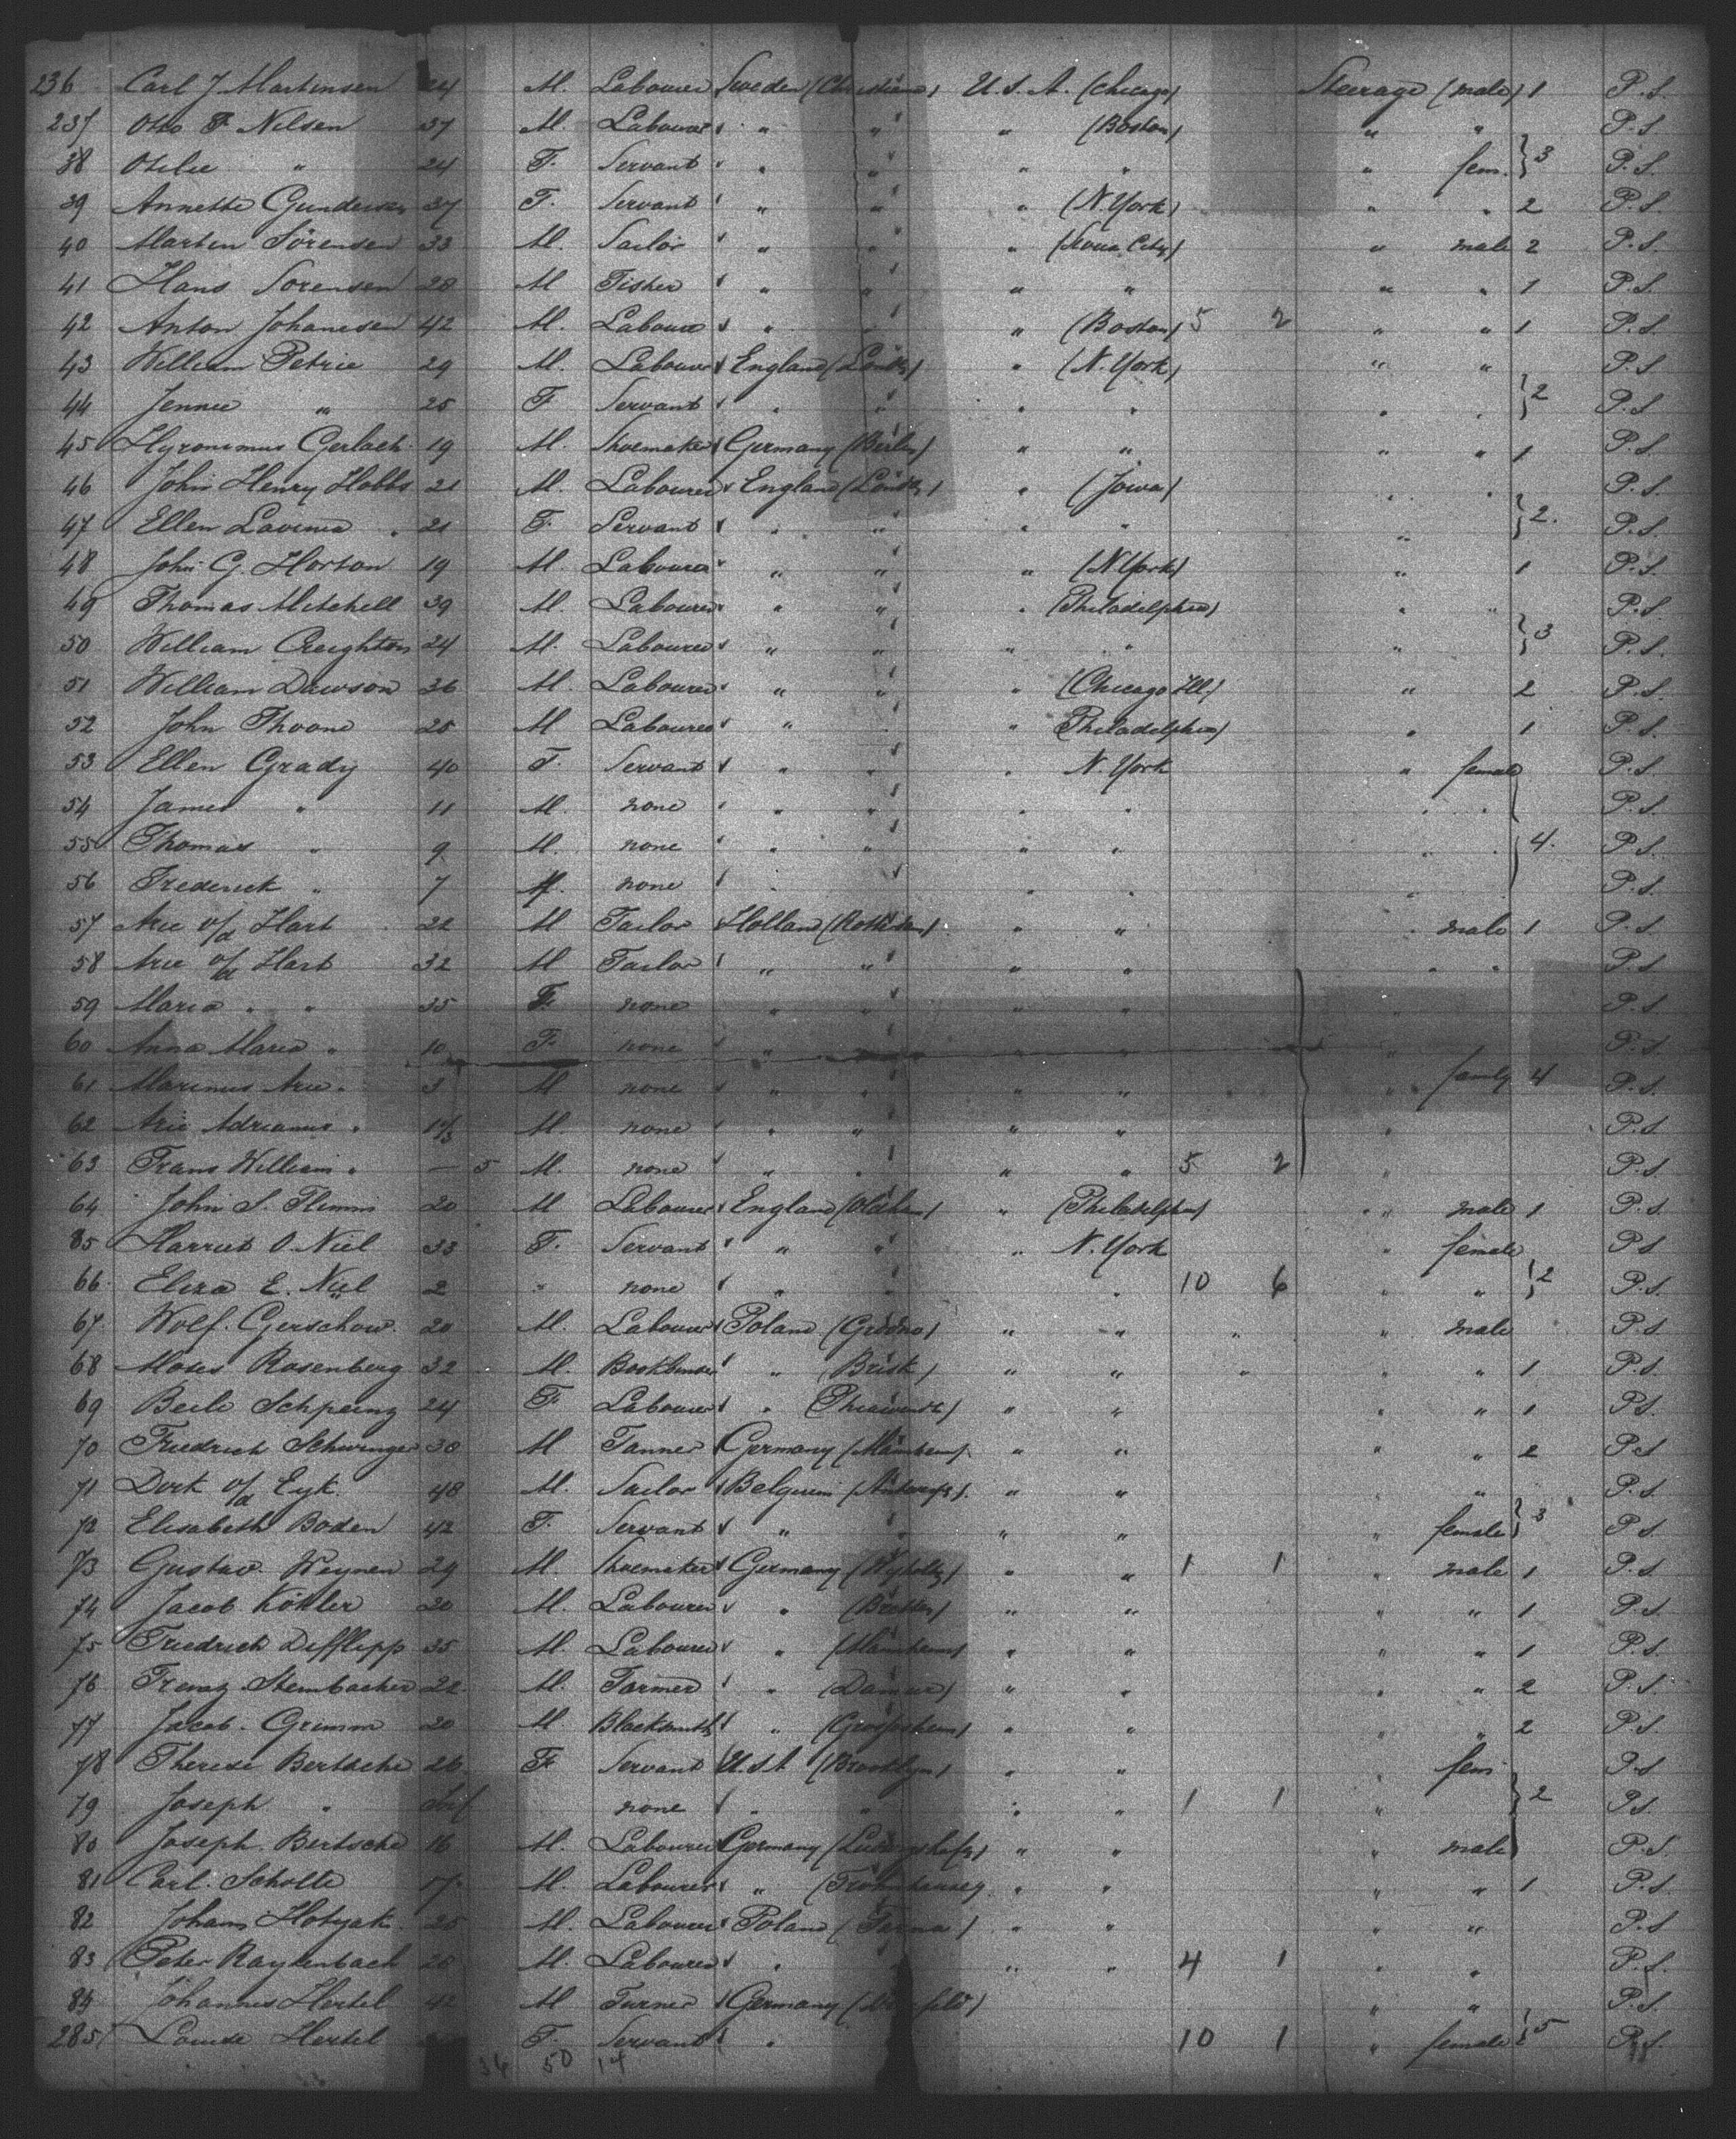 236 Carl J Martinsen 24 M. Labourer Sweden (Christiana) U.S.A. (Chicago) Steerage (male) 1 P.S.
237 Otto F Nilsen 37 M. Labourer " " " (Boston) " " P.S.
38 Otilie " 24 F. Servant " " " " " fem. } 3 P.S.
39 Annette Gundersen 37 F. Servant " " " (N. York) " " 2 P.S.
40 Martin Sörensen 33 M. Sailor " " " (Iowa City) " male 2 P.S.
41 Hans Sorensen 28 M Fisher " " " " " " 1 P.S.
42 Anton Johanesen 42 M. Labourer " " " (Boston) 5 2 " " 1 P.S.
43 William Petrie 29 M. Labourer England (London) " (N. York) " " P.S.
44 Jennie " 25 F Servant " " " " " " } 2 P.S
45 Hyronimus Gerlach 19 M. Shoemaker Germany (Berlin) " " " " 1 P.S.
46 John Henry Hobbs 21 M. Labourer England (London) " (Iowa) " " P.S.
47 Ellen Lavinia " 21 F. Servant " " " " " } 2. P.S.
48 John G. Horton 19 M. Labourer " " " (N. York) " 1 P.S.
49 Thomas Mitchell 39 M. Labourer " " " (Philadelphia) " " P.S.
50 William Creighton 24 M. Labourer " " " " " } 3 P.S.
51 William Dawson 36 M. Labourer " " " (Chicago Ill.) " 2 P.S.
52 John Thoone 25 M Labourer " " (Philadelphia) " 1 P.S.
53 Ellen Grady 40 F. Servant " " " N. York " female P.S.
54 James " 11 M. none " " " " " " P.S.
55 Thomas " 9 M. none " " " " " " } 4. P.S.
56 Frederick " 7 M. none " " " " P.S.
57 Arie v/d Hart 22 M Tailor Holland (Rotterdam) " " " male 1 P.S.
58 Arie v/d Hart 32 M Tailor " " " " " " P.S
59 Maria " " 35 F. none " " " " P.S.
60 Anna Maria " 10 F. none " " " " " P.S.
61 Marinus Arie " 3 M none " " " " " family 4 P.S.
62 Arie Adrianus " M. none " " " " " P.S.
63 Frans William " — 5 M. none " " " " 5 2 " P.S.
64 John S. Flemin 20 M Labourer England (Oldham) " (Philadelphia) " male 1 P.S.
85 Harriet O. Niel 33 F. Servant " " " N. York " female P.S
66 Eliza E. Niel 2 " none " " " 10 6 " " } 2 P.S.
67 Wolf. Gerschow. 20 M. Labourer Poland (Grodno) " " " " male P.S
68 Moses Rosenberg 32 M. Bookbinder " (Brisk) " " " " " 1 P.S.
69 Beile Schpeinz 24 F Labourer " " " " " 1 P.S.
70 Friedrich Schwinger 30 M Tanner Germany (Manheim) " " " 2 P.S
71 Dirk v/d Eyk. 48 M. Sailor Belgium (Antwerp) " " " P.S.
72 Elisabeth Boden 42 F. Servant " " " " " female } 3 P.S.
73 Gustav Weynen 29 M. Shoemaker Germany " " 1 1 " male 1 P.S
74 Jacob Köhler 20 M. Labourer " (Bretten) " " " " 1 P.S
75 Friedrich Difflipp 35 M. Labourer " (Manheim) " " " " 1 P.S.
76 Franz Steinbacher 22 M. Farmer " " " " " 2 P.S.
77 Jacob Grimm 20 M. Blacksmith " " " " " 2 P.S
78 Therese Bertsche 26 F Servant U.S.A (Brooklyn) " " " fem P.S
79 Joseph " Inf none " " " " 1 1 " } 2 P.S.
80 Joseph Bertsche 16 M. Labourer Germany (Ludwigshafen) " " " male P.S.
81 Carl. Scholte 17 M. Labourer " " " " " 1 P.S.
82 Johans Hotyak 25 M. Labourer Poland " " " " P.S
83 Peter Raytenbach 20 M. Labourer " " " 4 1 " " P.S.
84 Johannes Hertel 42 M Turner Germany " " P.S
285 Louise Hertel F. Servant " 10 1 " female } 5 P.S.
36 50 14